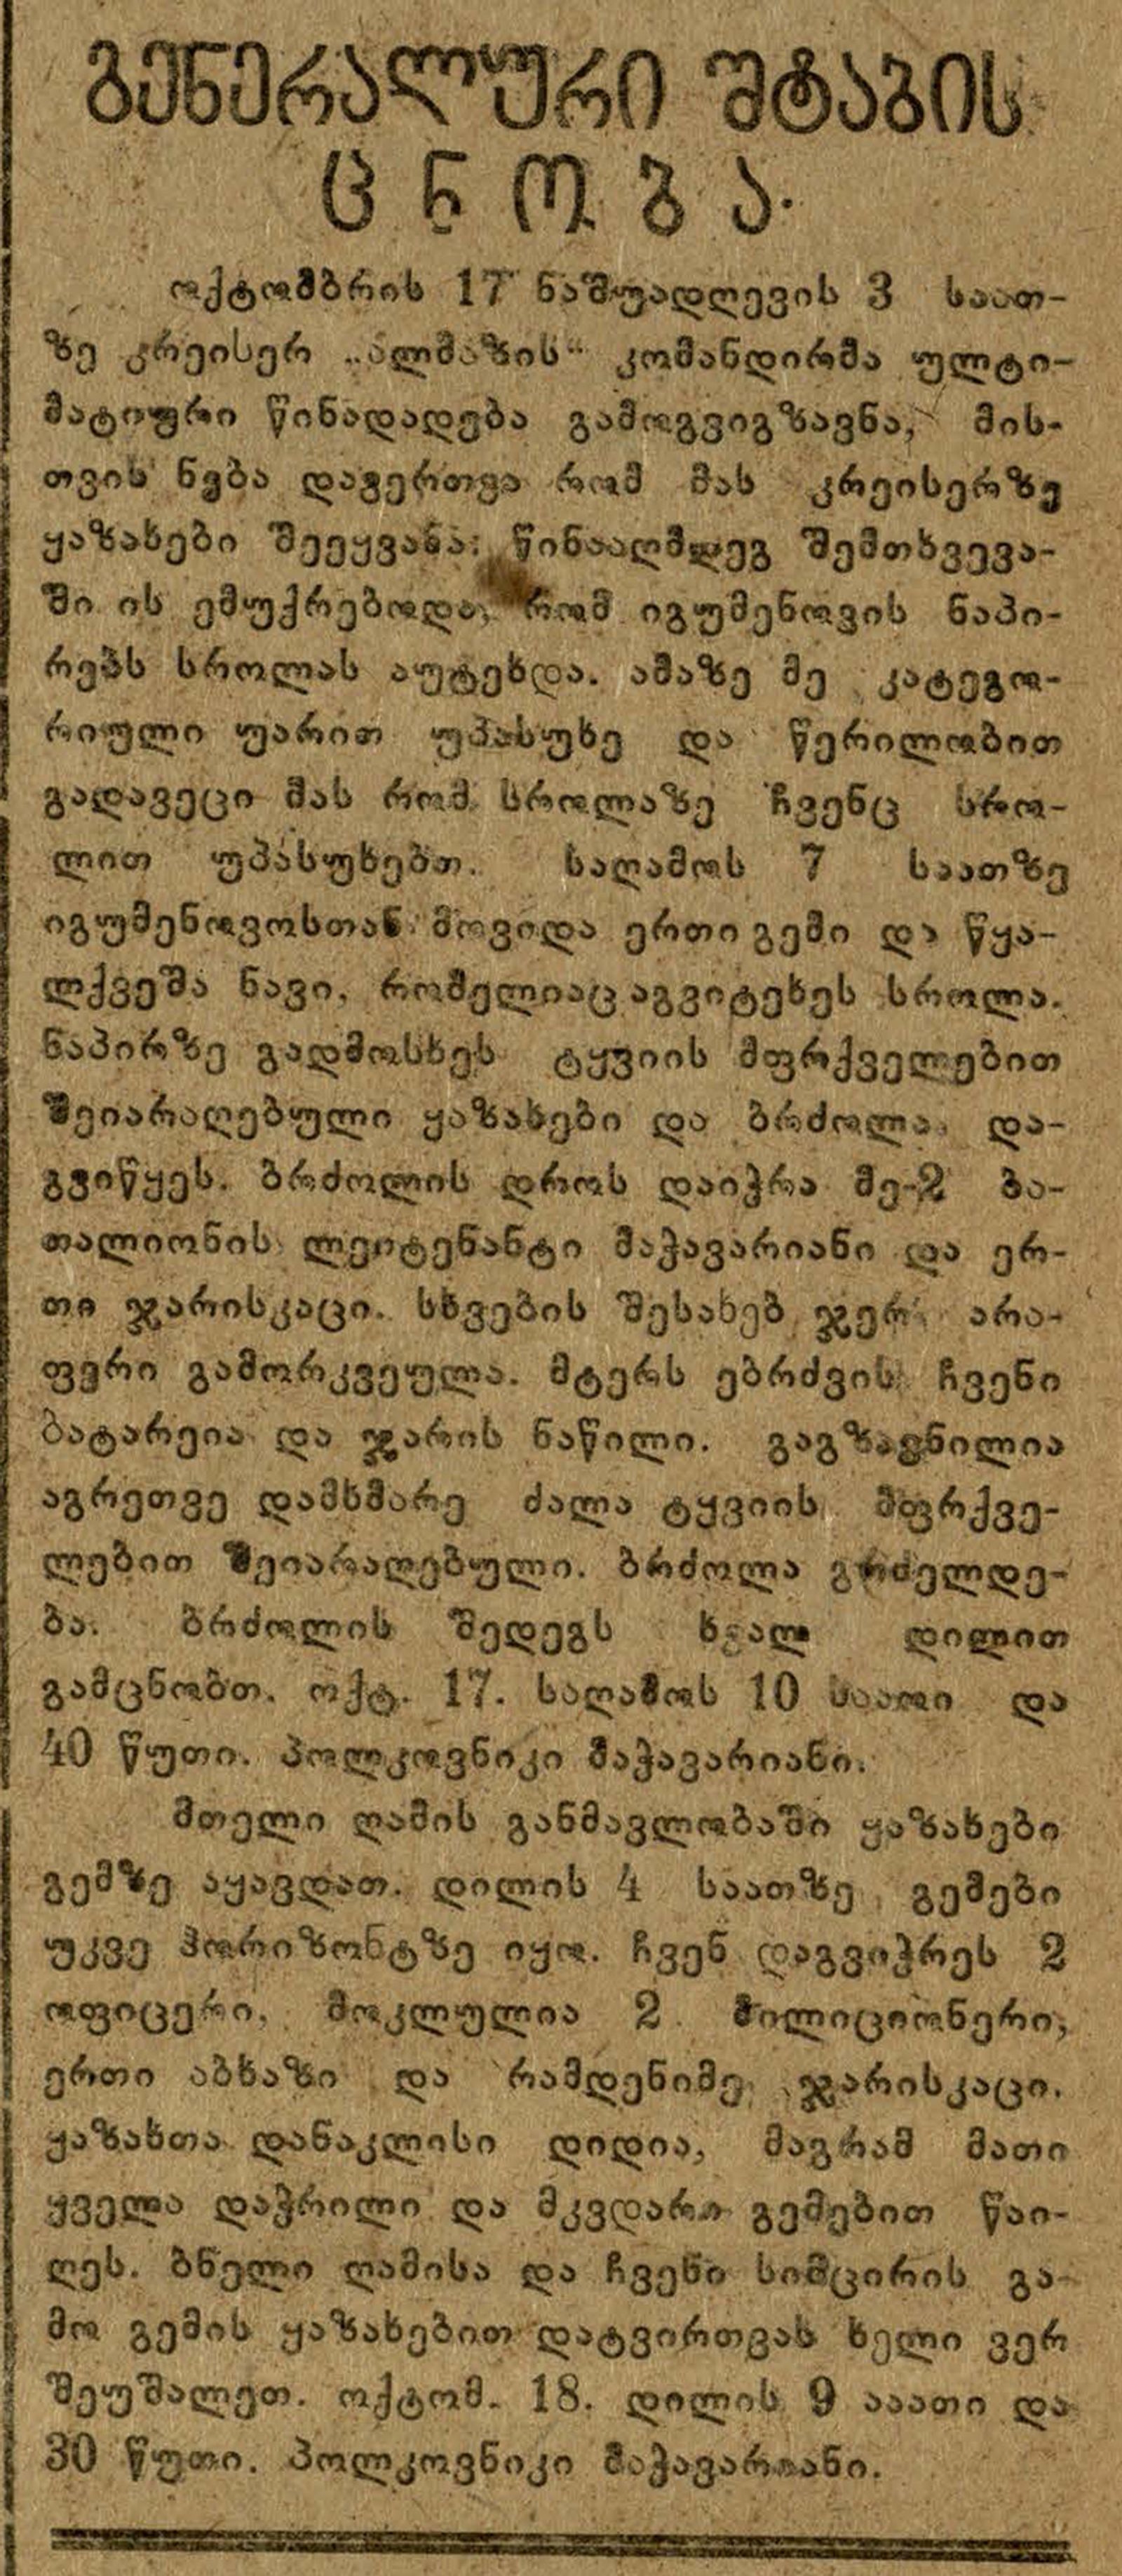 გენერალური შტაბის
ცნობა.
ოქტომბრის 17 ნაშუადღევის 3 საათ-
ზე კრეისერ „ალმაზის“ კომანდირმა ულტი-
მატიური წინადადება გამოგვიგზავნა, მის-
თვის ნება დაგერთვა რომ მას კრეისერზე
ყაზახები შეეყვანა: წინააღმდეგ შემთხვევა-
ში ის ემუქრებოდა, რომ იგუმენოვის ნაპი-
რებს სროლას აუტეხდა. ამაზე მე კატეგო-
რიული უარით უპასუხე და წერილობით
გადავეცი მას რომ სროლაზე ჩვენც სრო-
ლით უპასუხებთ. საღამოს 7 საათზე
იგუმენოვოსთან მოვიდა ერთი გემი და წყა-
ლქვეშა ნავი, რომელიაც აგვიტეხეს სროლა.
ნაპირზე გადმოსხეს ტყვიის მფრქველებით
შეიარაღებული ყაზახები და ბრძოლა და-
გვიწყეს. ბრძოლის დროს დაიჭრა მე-2 ბა-
თალიონის ლეიტენანტი მაჭავარიანი და ერ-
თი ჯარისკაცი. სხვების შესახებ ჯერ არა-
ფერი გამორკვეულა. მტერს ებრძვის ჩვენი
ბატარეია და ჯარის ნაწილი. გაგზავნილია
აგრეთვე დამხმარე ძალა ტყვიის მფრქვე-
ლებით შეიარაღებული. ბრძოლა გრძელდე-
ბა. ბრძოლის შედეგს ხვალ დილით
გამცნობთ. ოქტ. 17. საღამოს 10 საათი და
40 წუთი. პოლკოვნიკი მაჭავარიანი.
მთელი ღამის განმავლობაში ყაზახები
გემზე აყავდათ. დილის 4 საათზე გემები
უკვე ჰორიზონტზე იყო. ჩვენ დაგვიჭრეს 2
ოფიცერი, მოკლულია 2 მილიციონერი,
ერთი აბხაზი და რამდენიმე ჯარისკაცი.
ყაზახთა დანაკლისი დიდია, მაგრამ მათი
ყველა დაჭრილი და მკვდარი გემებით წაი-
ღეს. ბნელი ღამისა და ჩვენი სიმცირის გა-
მო გემის ყაზახებით დატვირთვას ხელი ვერ
შეუშალეთ. ოქტომ. 18. დილის 9 ააათი და
30 წუთი. პოლკოვნიკი მაჭავარიანი.